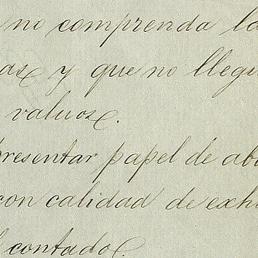 no comprenda la
y que no llegu
valuose.
presentar papel de abo
con calidad de exh
contado